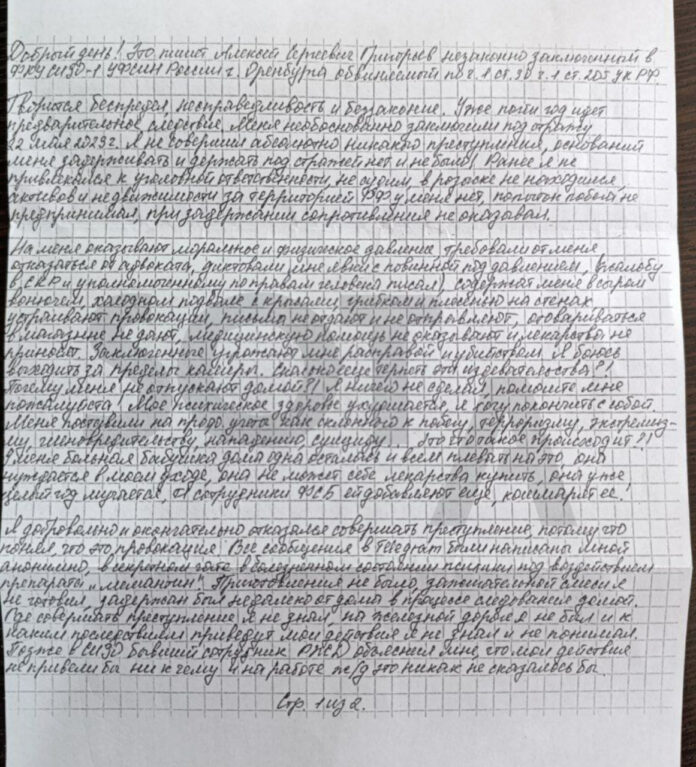 Добрый день! Это пишет Алексей Сергеевич Григорьев незаконно заключенный в
ФКУ СИЗО-1 УФСИН России г. Оренбурга обвиняемый по ч.1 ст.30 ч.1 ст.205 УК РФ.
Творится беспредел, несправедливость и беззаконие. Уже почти год идет
предварительное следствие, меня необоснованно заключили под стражу
22 мая 2025г. Я не совершил абсолютно никакого преступления, оснований
меня задерживать и держать под стражей нет и не было! Ранее я не
привлекался к уголовной ответственности, не судим, в розыске не находился,
активов и недвижимости за территорией РФ у меня нет, попыток побега не
предпринимал, при задержании сопротивления не оказывал.
На меня оказывают моральное и физическое давление, требовали от меня
отказаться от адвоката, диктовали мне явки с повинной под давлением, (жалобу
в СКР и уполномоченному по правам человека писал), содержат меня в сыром
вонючем, холодном подвале с крысами, грибком и плесенью на стенах
устраивают провокации, письма не отдают и не отправляют, отовариваться
в магазине не дают, медицинскую помощь не оказывают и лекарства не
приносят. Заключенные угрожают мне расправой и убийством. Я боюсь
выходить за пределы камеры. Сколько еще терпеть эти издевательства?!
Почему меня не отпускают домой?! Я ничего не сделал, помогите мне
пожалуйста! Мое психическое здоровье ухудшается, я хочу покончить с собой.
Меня поставили на проф. учета как склонного к побегу, терроризму, экстремиз-
му, членовредительству, нападению, суициду... Это что такое происходит?!
У меня больная бабушка дома одна осталась и всем плевать на это, она
нуждается в моем уходе, она не может себе лекарства купить, она уже
целый год мучается, а сотрудники ФСБ ей добавляют еще, кошмарят ее!
Я добровольно и окончательно отказался совершать преступление, потому что
понял, что это провокация. Все сообщения в Telegram были написаны мной
анонимно, в секретном чате в болезненном состоянии психики под воздействием
препарата "мемантин". Приготовления не было, зажигательной смеси я
не готовил, задержан был недалеко от дома в процессе следования домой.
Где совершать преступление я не знал, на железной дороге я не был и к
каким последствиям приведут мои действия я не знал и не понимал.
Позже в СИЗО бывший сотрудник РЖД объяснил мне, что мои действия
не привели бы ни к чему и на работе ж/д это никак не сказалось бы.
Стр. 1 из 2.